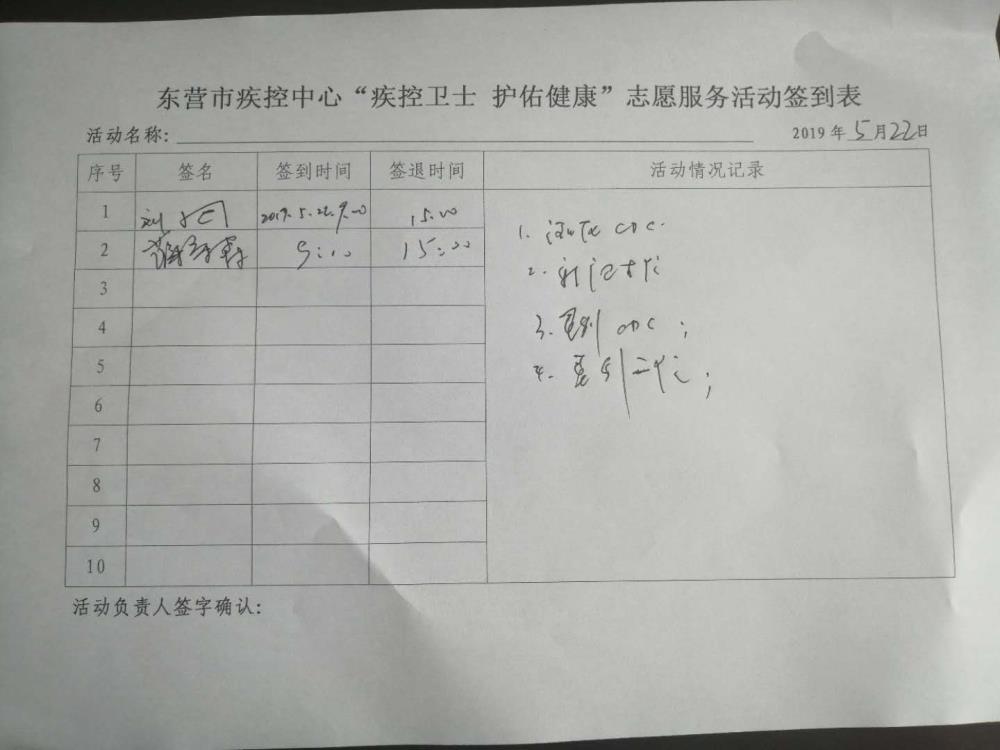 东营市疾控中心“疾控卫士 护佑健康”志愿服务活动签到表
活动名称： 2019 年 5 月 22 日
序号 签名 签到时间 签退时间 活动情况记录
1 刘 2019.5.22.9:00 15:00
2 9:00 15:00
3
4
5
6
7
8
9
10
1. CDC.
2.
3. CDC;
4.
活动负责人签字确认：